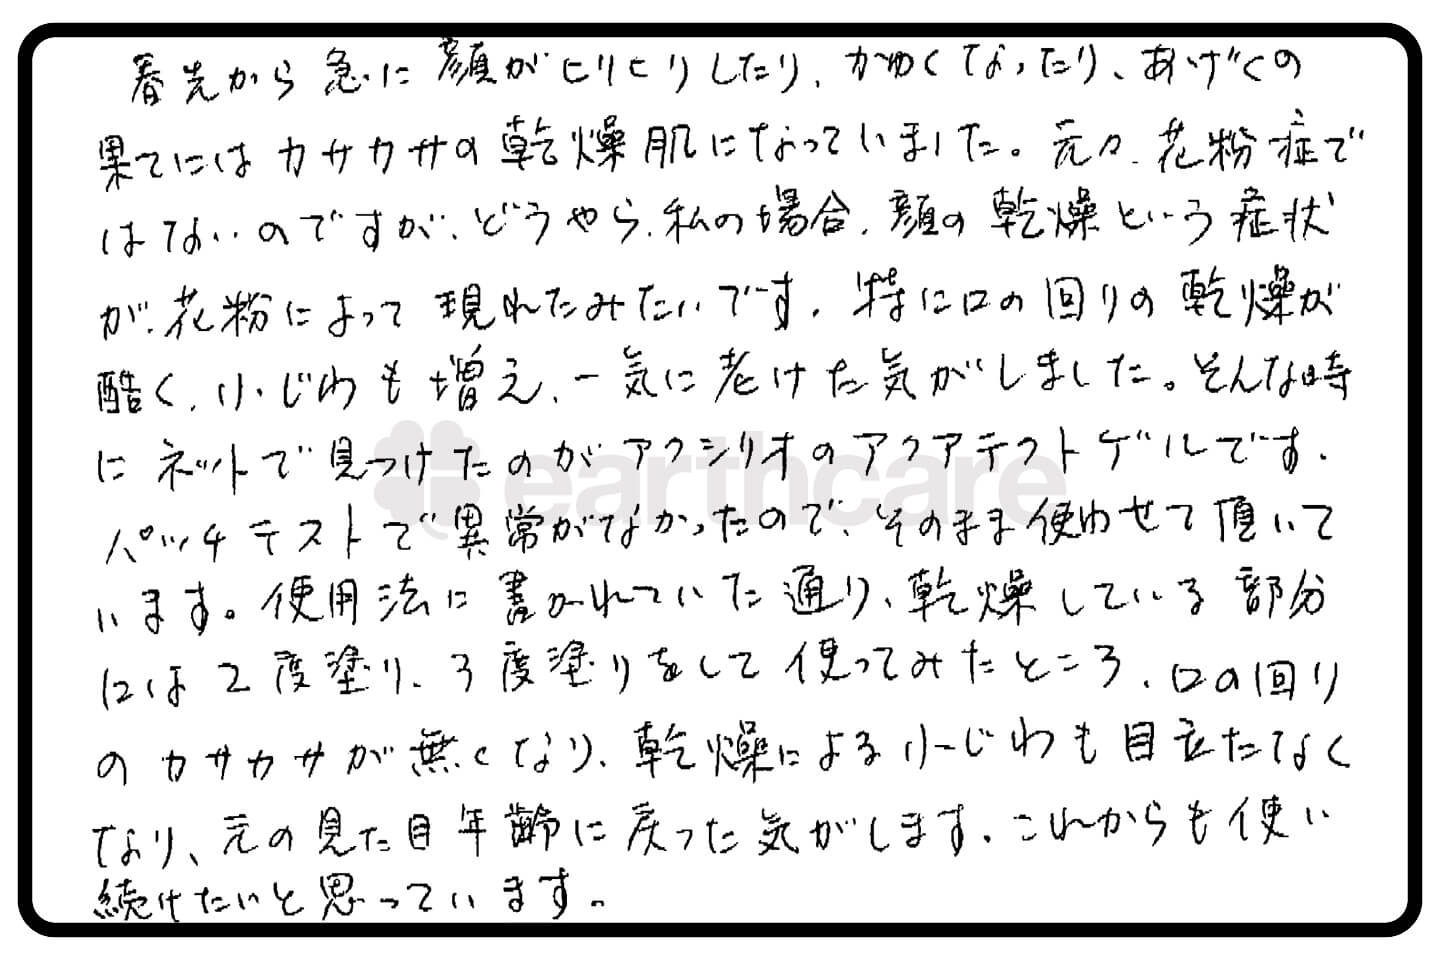 春先から急に顔がヒリヒリしたり、かゆくなったり、あげくの
果てにはカサカサの乾燥肌になっていました。元々、花粉症で
はないのですが、どうやら、私の場合、顔の乾燥という症状
が、花粉によって現れたみたいです。特に口の回りの乾燥が
酷く、小じわも増え、一気に老けた気がしました。そんな時
にネットで見つけたのがアクシリオのアクアテクトゲルです。
パッチテストで異常がなかったので、そのまま使わせて頂いて
います。使用法に書かれていた通り、乾燥している部分
には2度塗り、3度塗りをして使ってみたところ、口の回り
のカサカサが無くなり、乾燥による小じわも目立たなく
なり、元の見た目年齢に戻った気がします。これからも使い
続けたいと思っています。
earthcare